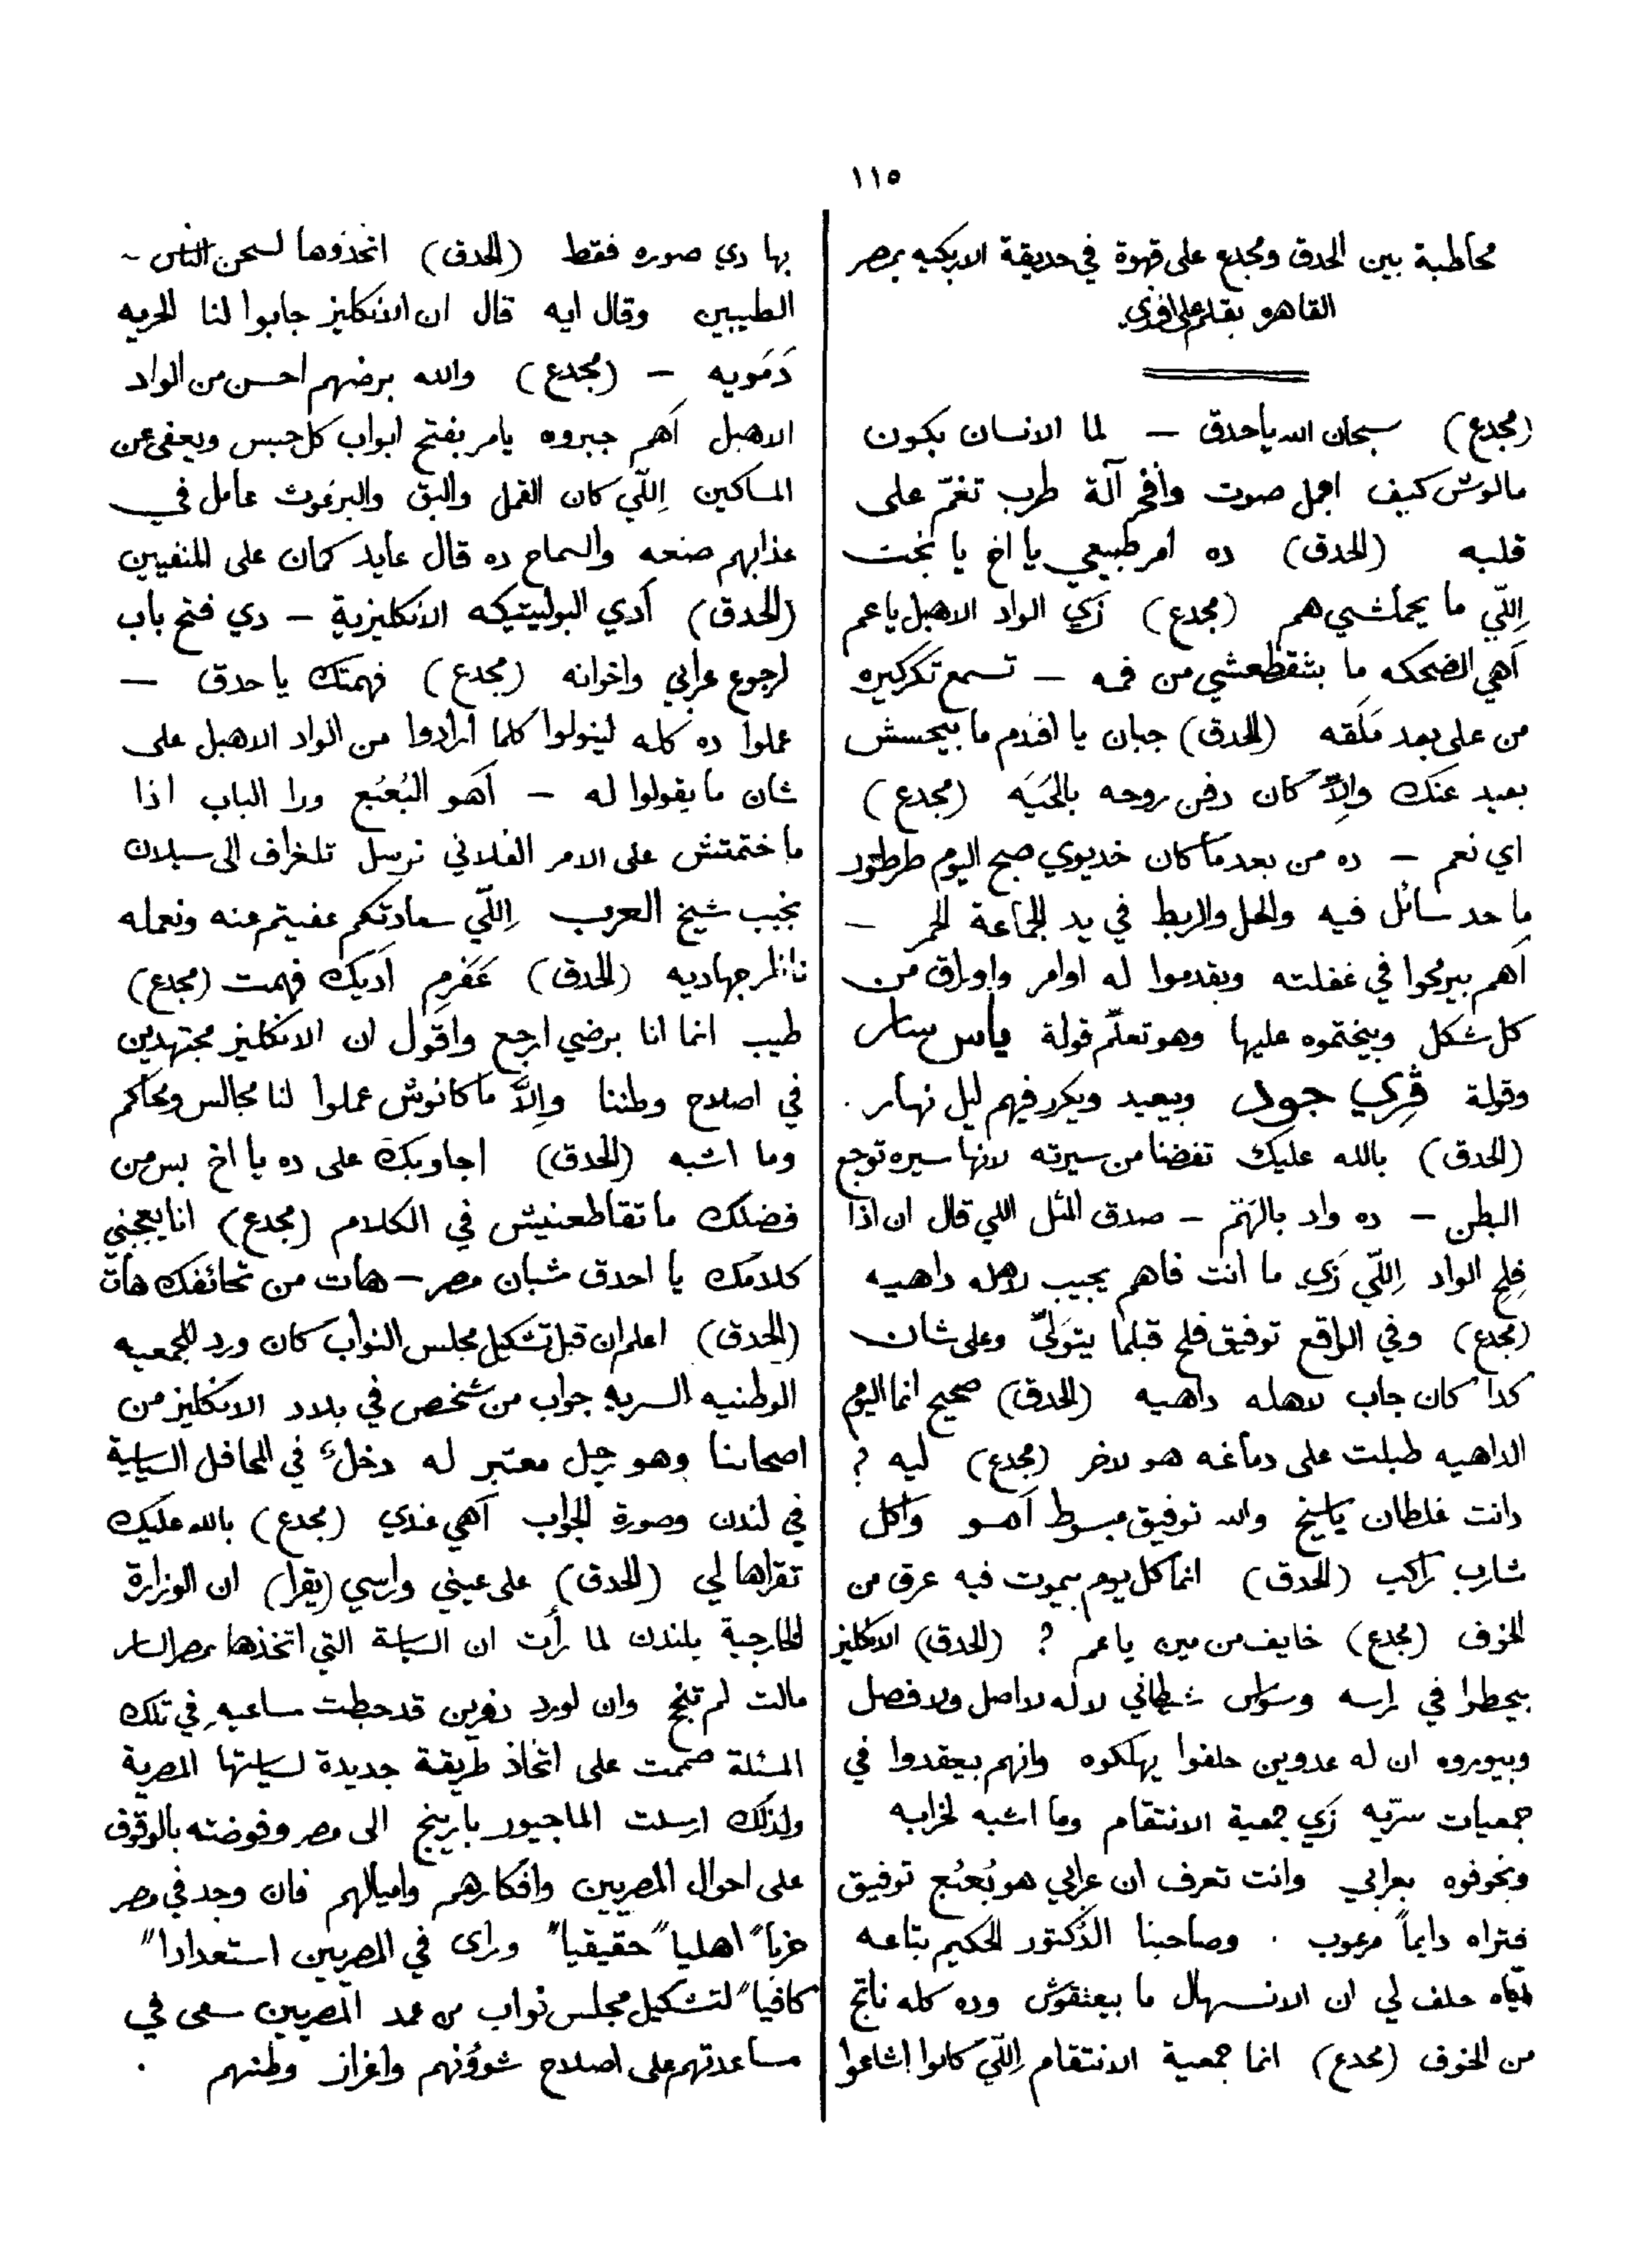 ١١٥
مخاطبة بين الحدق ومجدع على قهوة في حديقة الازبكيه بمصر
القاهره بقلم
(مجدع) سبحان الله ياحدق — لما الانسان يكون
مالوش كيف اجمل صوت وافخر آلة طرب تغمّ على
قلبه (الحدق) ده امر طبيعي يا اخ يا بخت
اِللّي ما يحملشي هم (مجدع) زَي الواد الاهبل ياعم
اَهي الضحكه ما بتقطعشي من فمه — تسمع تكركيره
من على بعد مَلَقه (الحدق) جبان يا افندم ما بيحسش
بعيد عنك واِلاّ كان دفن روحه بالحَيَه (مجدع)
اي نعم — ده من بعد ما كان خديوي صبح اليوم طرطور
ما حد سائل فيه والحل والربط في يد الجماعة الحمر —
اَهم بيرمحوا في غفلته ويقدموا له اوامر واوراق من
كل شكل ويختموه عليها وهو تعلّم قولة ياس سار
وقولة ڤري جود ويعيد ويكرر فيهم ليل نهار .
(الحدق) بالله عليك تفضنا من سيرته لانها سيره توجع
البطن — ده واد بالهَمّ — صدق المثل اللي قال ان اذا
فِلِح الواد اِللّي زَي ما انت فاهم يجيب لاهله داهيه
(مجدع) وفي الواقع توفيق فلح قبلما يتوَلّى وعلى شان
كدا كان جاب لاهله داهيه (الحدق) صحيح انما اليوم
الداهيه طبلت على دماغه هو لاخر (مجدع) ليه ?
دانت غلطان ياشيخ والله توفيق مبسوط اَهو واكل
شارب راكب (الحدق) انما كل يوم بيموت فيه عرق من
الخوف (مجدع) خايف من مين ياعم ? (الحدق) الانكليز
بيحطوا في راسه وسواس شيطاني لا له لا اصل ولا فصل
وبيوروه ان له عدوين حلفوا يهلكوه وانهم بيعقدوا في
جمعيات سرّيه زَي جمعية الانتقام وما اشبه لخرابه
وبخوفوه بعرابي وانت تعرف ان عرابي هو بُعبُع توفيق
فتراه دايماً مرعوب . وصاحبنا الدكتور الحكيم بتاعه
حلف لي ان الانسهال ما بيعتقوش وده كله ناتج
من الخوف (مجدع) انما جمعية الانتقام اِللّي كانوا اشاعوا
بها دي صوره فقط (الحدق) اتخذوها لسجن الناس
الطيبين وقال ايه قال ان الانكليز جابوا لنا الحريه
دَمَويه — (مجدع) والله برضهم احسن من الواد
الاهبل اَهم جبروه يامر بفتح ابواب كل حبس ويعفي عن
المساكين اِللّي كان القمل والبق والبرغوث عامل في
عذابهم صنعه والسماح ده قال عايد كمان على المنفيين
(الحدق) اَدي البوليتيكه الانكليزية — دي فتح باب
لرجوع عرابي واخوانه (مجدع) فهمتك ياحدق —
عملوا ده كله لينولوا كلما ارادوا من الواد الاهبل على
شان ما يقولوا له — اَهو البُعبُع ورا الباب اذا
ما ختمتش على الامر الفلاني نرسل تلغراف الى سيلان
نجيب شيخ العرب اِللّي سعادتكم عفيتم عنه ونعمله
ناظر جهاديه (الحدق) عَفَرم اَديك فهمت (مجدع)
طيب انما انا برضي ارجع واقول ان الانكليز مجتهدين
في اصلاح وطننا واِلاَّ ما كانوش عملوا لنا مجالس ومحاكم
وما اشبه (الحدق) اجاوبك على ده يا اخ بس من
فضلك ما تقاطعنيش في الكلام (مجدع) انا يعجبني
كلامك يا احدق شبان مصر — هات من تحائفك هات
(الحدق) اعلم ان قبل تشكيل مجلس النواب كان ورد للجمعيه
الوطنيه السريه جواب من شخص في بلاد الانكليز من
اصحابنا وهو رجل معتبر له دخل في المحافل السياسية
في لندن وصورة الجواب اَهي عندي (مجدع) بالله عليك
تقراها لي (الحدق) على عيني وراسي (يقرا) ان الوزارة
الخارجية بلندن لما رأت ان السياسة التي اتخذها بمصر السار
مالت لم تنجح وان لورد دفرين قد حبطت مساعيهِ في تلك
المسئلة صممت على اتخاذ طريقة جديدة لسياستها المصرية
ولذلك ارسلت الماجيور بارينج الى مصر وفوضته بالوقوف
على احوال المصريين وافكارهم واميالهم فان وجد في مصر
حزباً اهلياً حقيقياً وراى في المصريين استعداداً
كافياً لتشكيل مجلس نواب من عمد المصريين سعى في
مساعدتهم على اصلاح شوؤنهم واعزاز وطنهم .